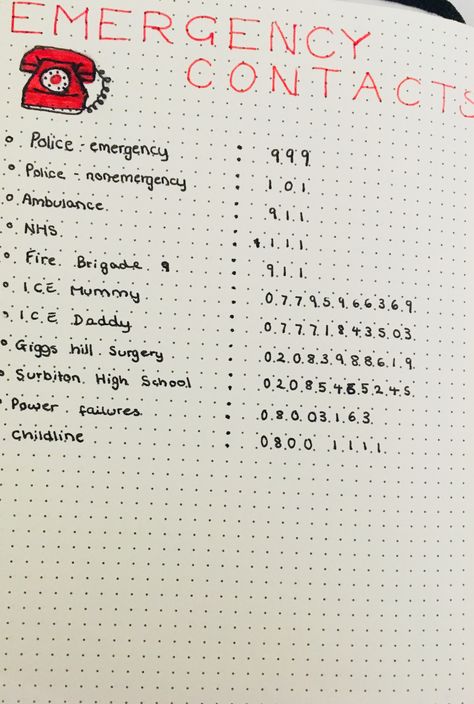 EMERGENCY
CONTACTS
Police - emergency : 999
Police - nonemergency : 101
Ambulance : 911
NHS : 111
Fire Brigade : 911
I.C.E Mummy : 07795966369
I.C.E Daddy : 07771843503
Giggs hill Surgery : 02083988619
Surbiton High School : 02085465245
Power failures : 08003163
Childline : 0800 1111